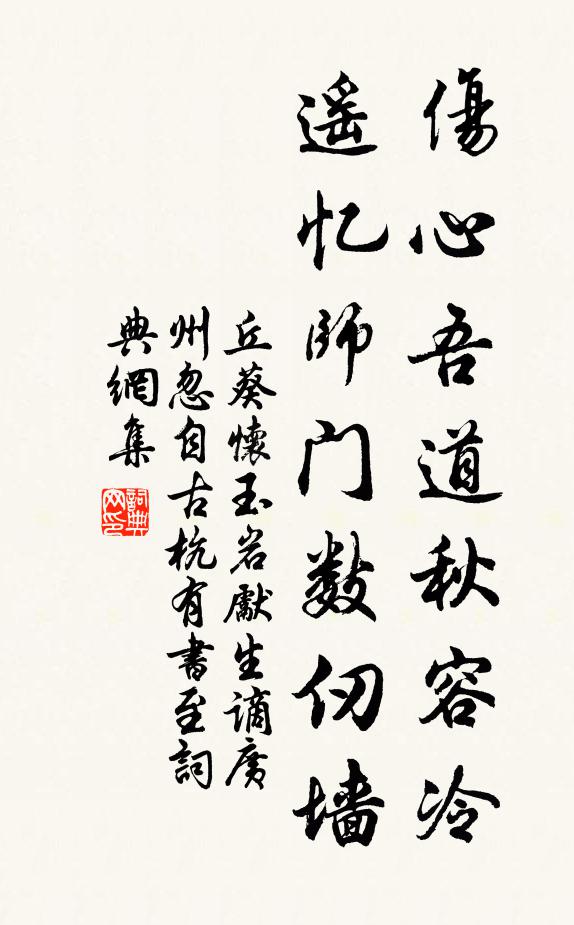 傷心吾道秋容冷
遥忆師门数仞墙
丘葵懷玉岩獻生謫廣
州忽自古杭有書至詞
典網集
詞典
网印